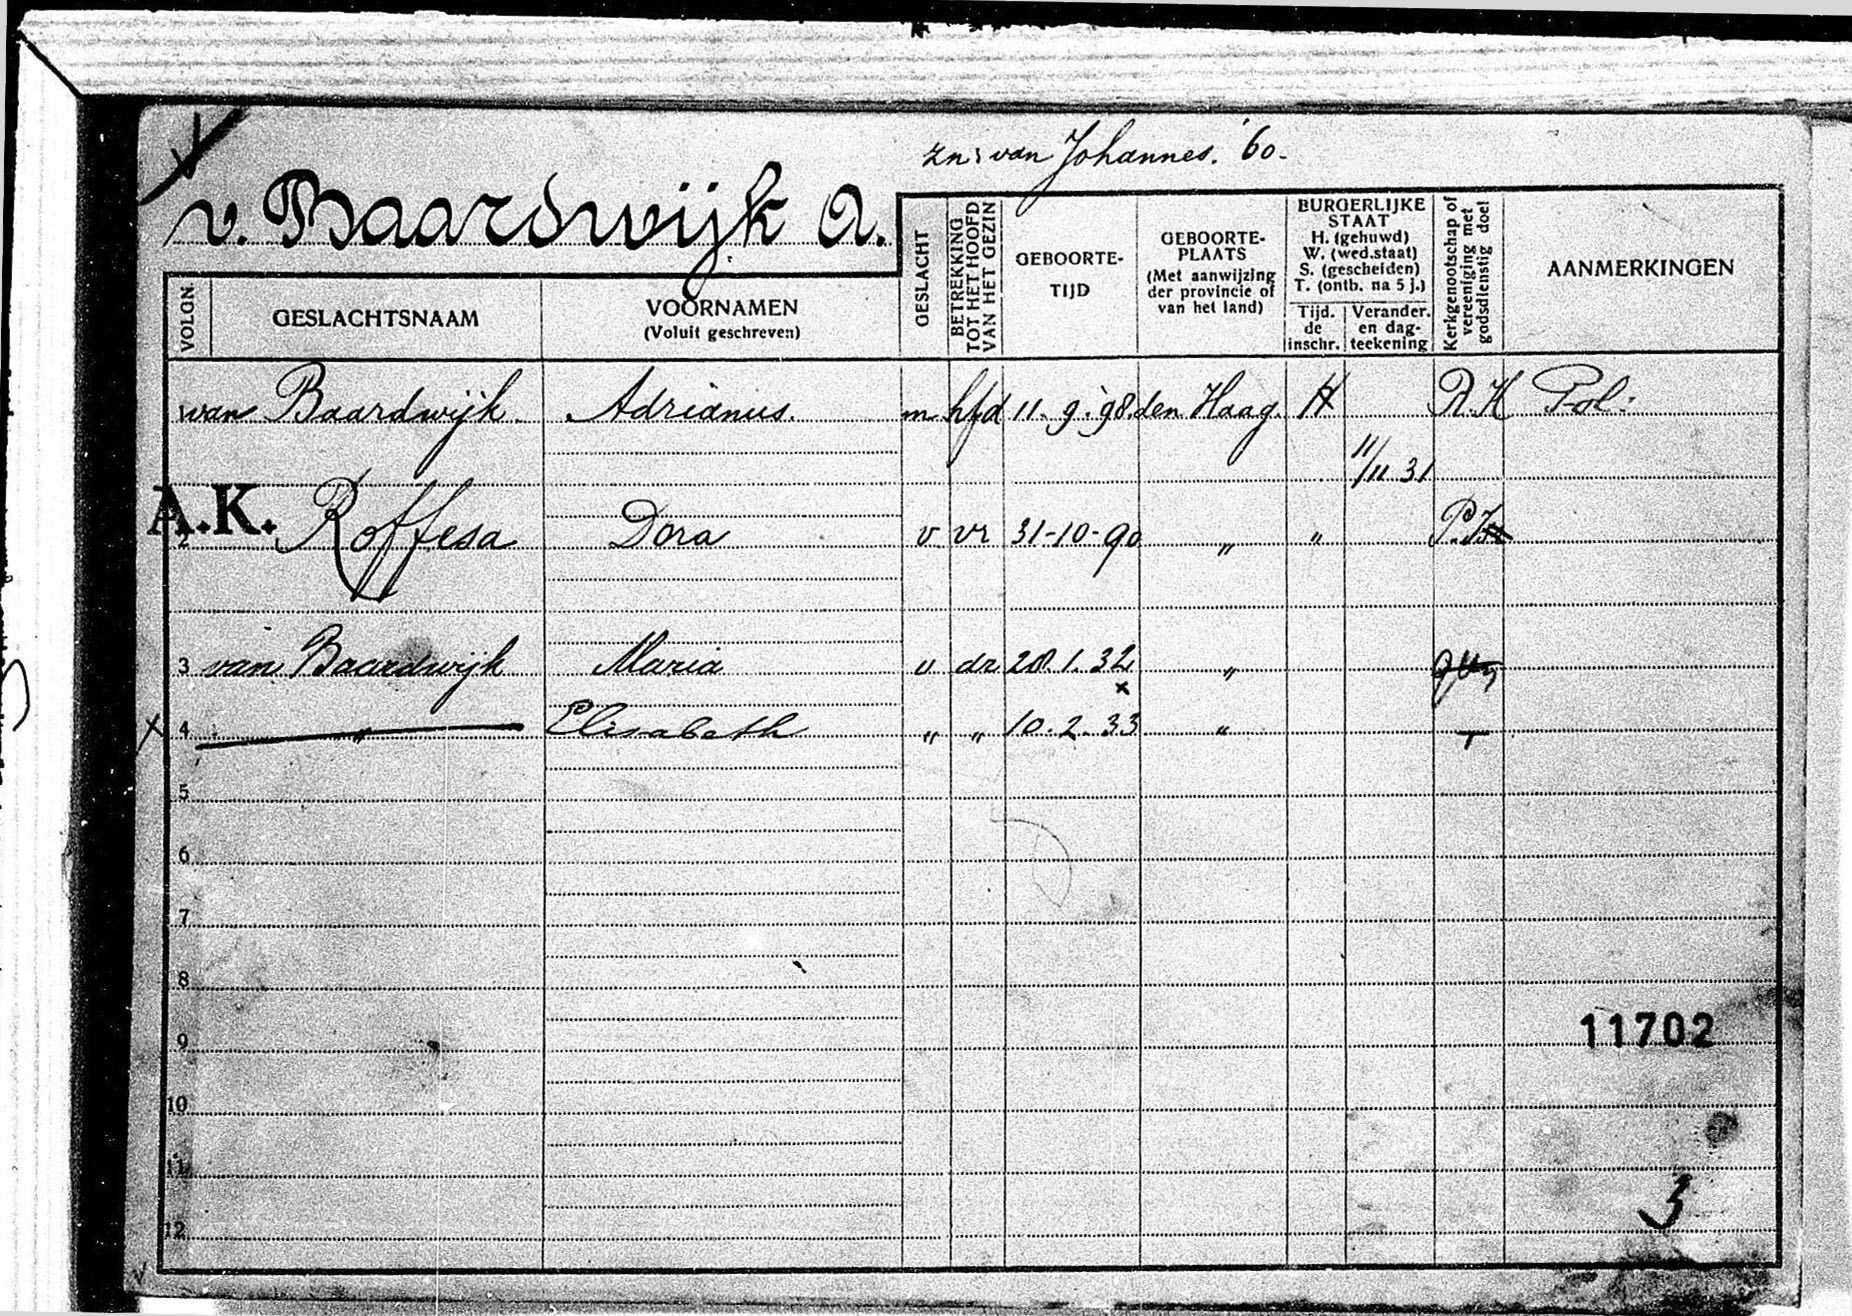 zn: van Johannes. '60.
v. Baardwijk A.
VOLGN. GESLACHTSNAAM VOORNAMEN (Voluit geschreven) GESLACHT BETREKKING TOT HET HOOFD VAN HET GEZIN GEBOORTE-TIJD GEBOORTE-PLAATS (Met aanwijzing der provincie of van het land) BURGERLIJKE STAAT H. (gehuwd) W. (wed.staat) S. (gescheiden) T. (ontb. na 5 j.) Tijd. de inschr. Verander. en dag-teekening Kerkgenootschap of vereeniging met godsdienstig doel AANMERKINGEN
van Baardwijk. Adrianus. m hfd 11. 9. '98. den Haag. H R.K Pol.
11/11 31
A.K.
2 Roffesa Dora v vr 31-10-90 „ „
3 van Baardwijk Maria v dr 20.1.32 „
x
x 4 „ Elisabeth „ „ 10.2.33 „
5
6
7
8
9
11702
10
11
3
12